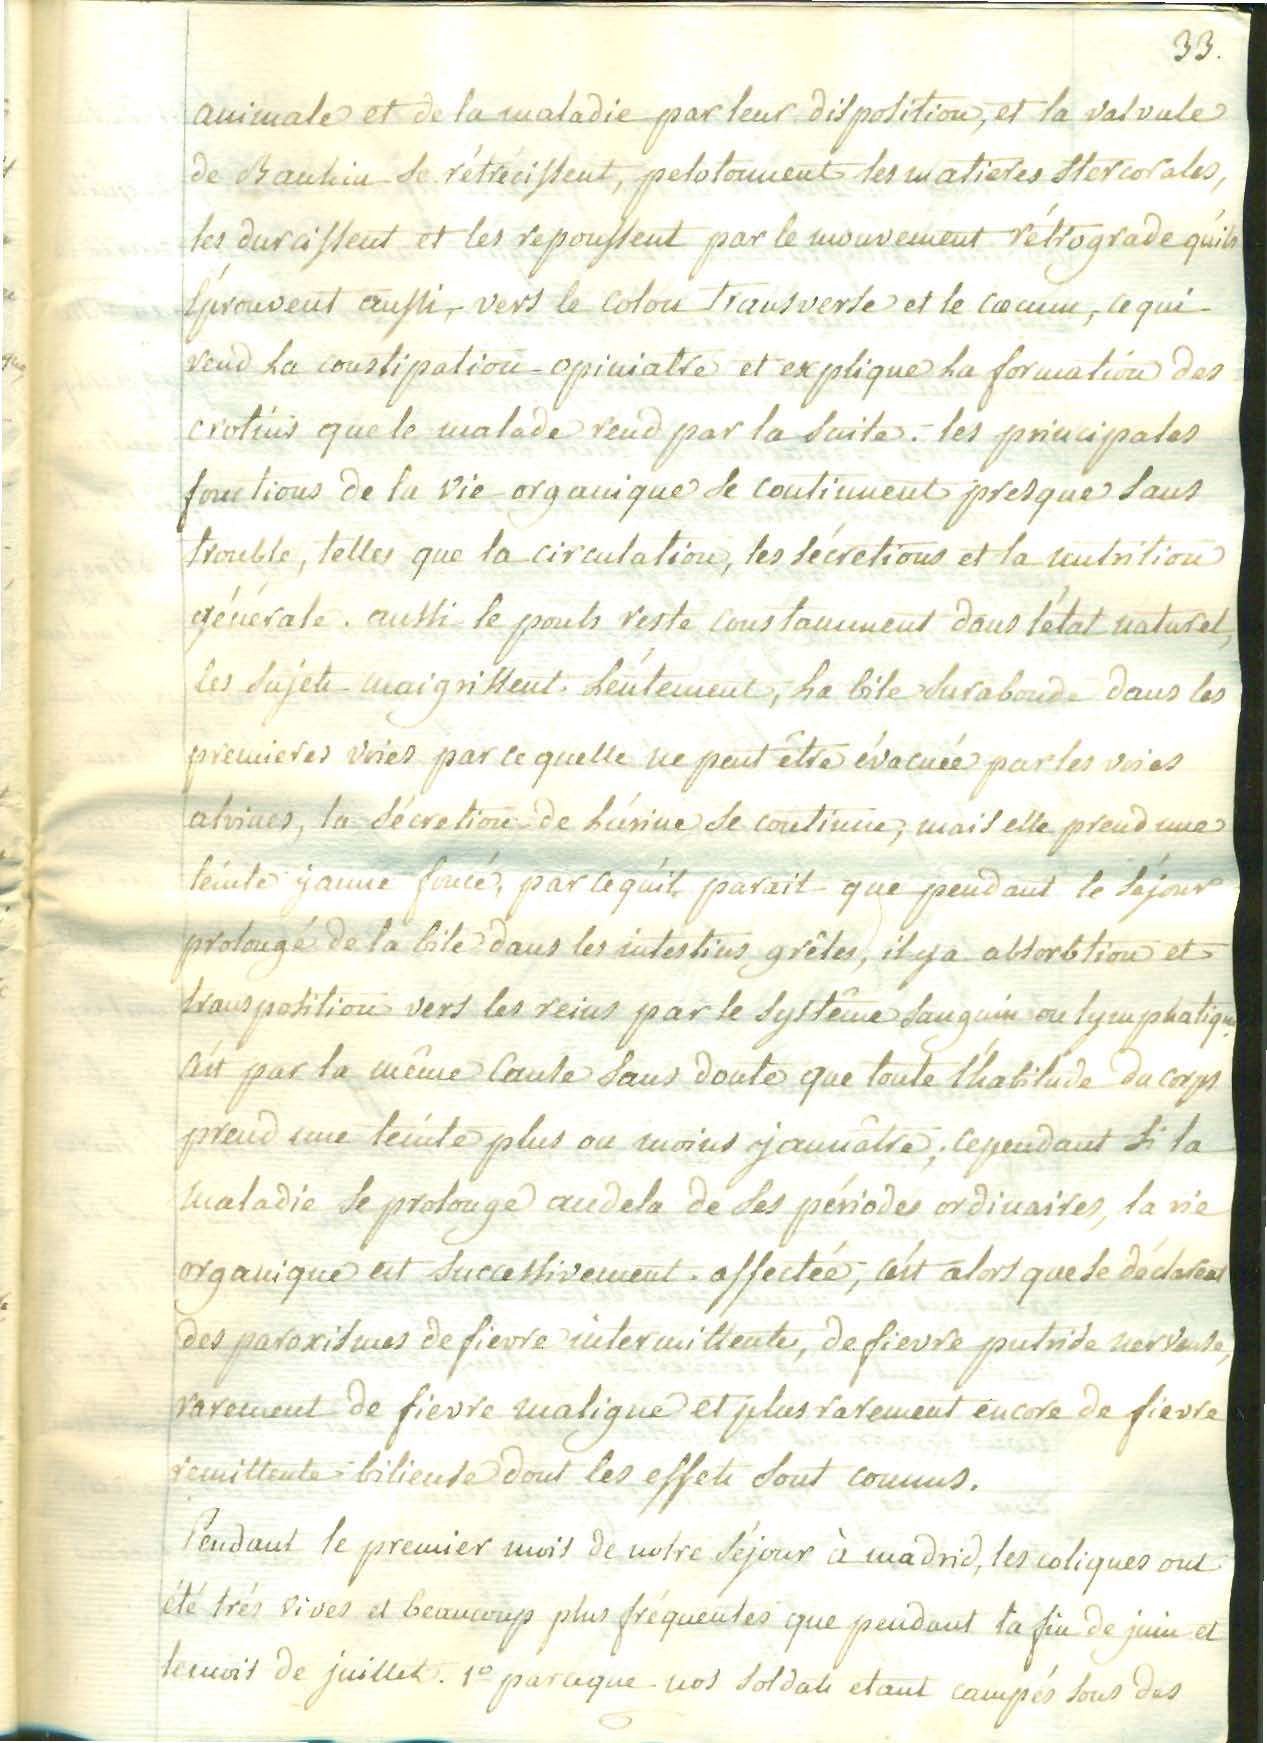 33.
animale et de la maladie par leur disposition, et la valvule
de Bauhin se rétrécissent, pelotonnent les matieres stercorales,
les durcissent et les repoussent par le mouvement rétrograde qu'ils
éprouvent aussi, vers le colon transverse et le cœcum, ce qui
rend la constipation opiniatre et explique la formation des
crotins que le malade rend par la suite. les principales
fonctions de la vie organique se continuent presque sans
trouble, telles que la circulation, les sécretions et la nutrition
générale. aussi le pouls reste constamment dans l'état naturel,
les sujets maigrissent lentement, la bile surabonde dans les
premieres voies parce quelle ne peut être évacuée par les voies
alvines, la sécretion de l'urine se continue, mais elle prend une
teinte jaune foncé, parcequ'il parait que pendant le séjour
prolongé de la bile dans les intestins grêles, il y a absorbtion et
transposition vers les reins par le systême sanguin ou lymphatique.
c'est par la même cause sans doute que toute l'habitude du corps
prend une teinte plus ou moins jaunâtre; cependant si la
maladie se prolonge audela de ses périodes ordinaires, la vie
organique est successivement affectée, c'est alors que se déclarent
des paroxismes de fievre intermittente, de fievre putride nerveuse,
rarement de fievre maligne et plus rarement encore de fievre
remittente bilieuse dont les effets sont connus.
Pendant le premier mois de notre séjour à madrid, les coliques ont
été trés vives et beaucoup plus fréquentes que pendant la fin de juin et
le mois de juillet. 1º parceque nos soldats etant campés sous des